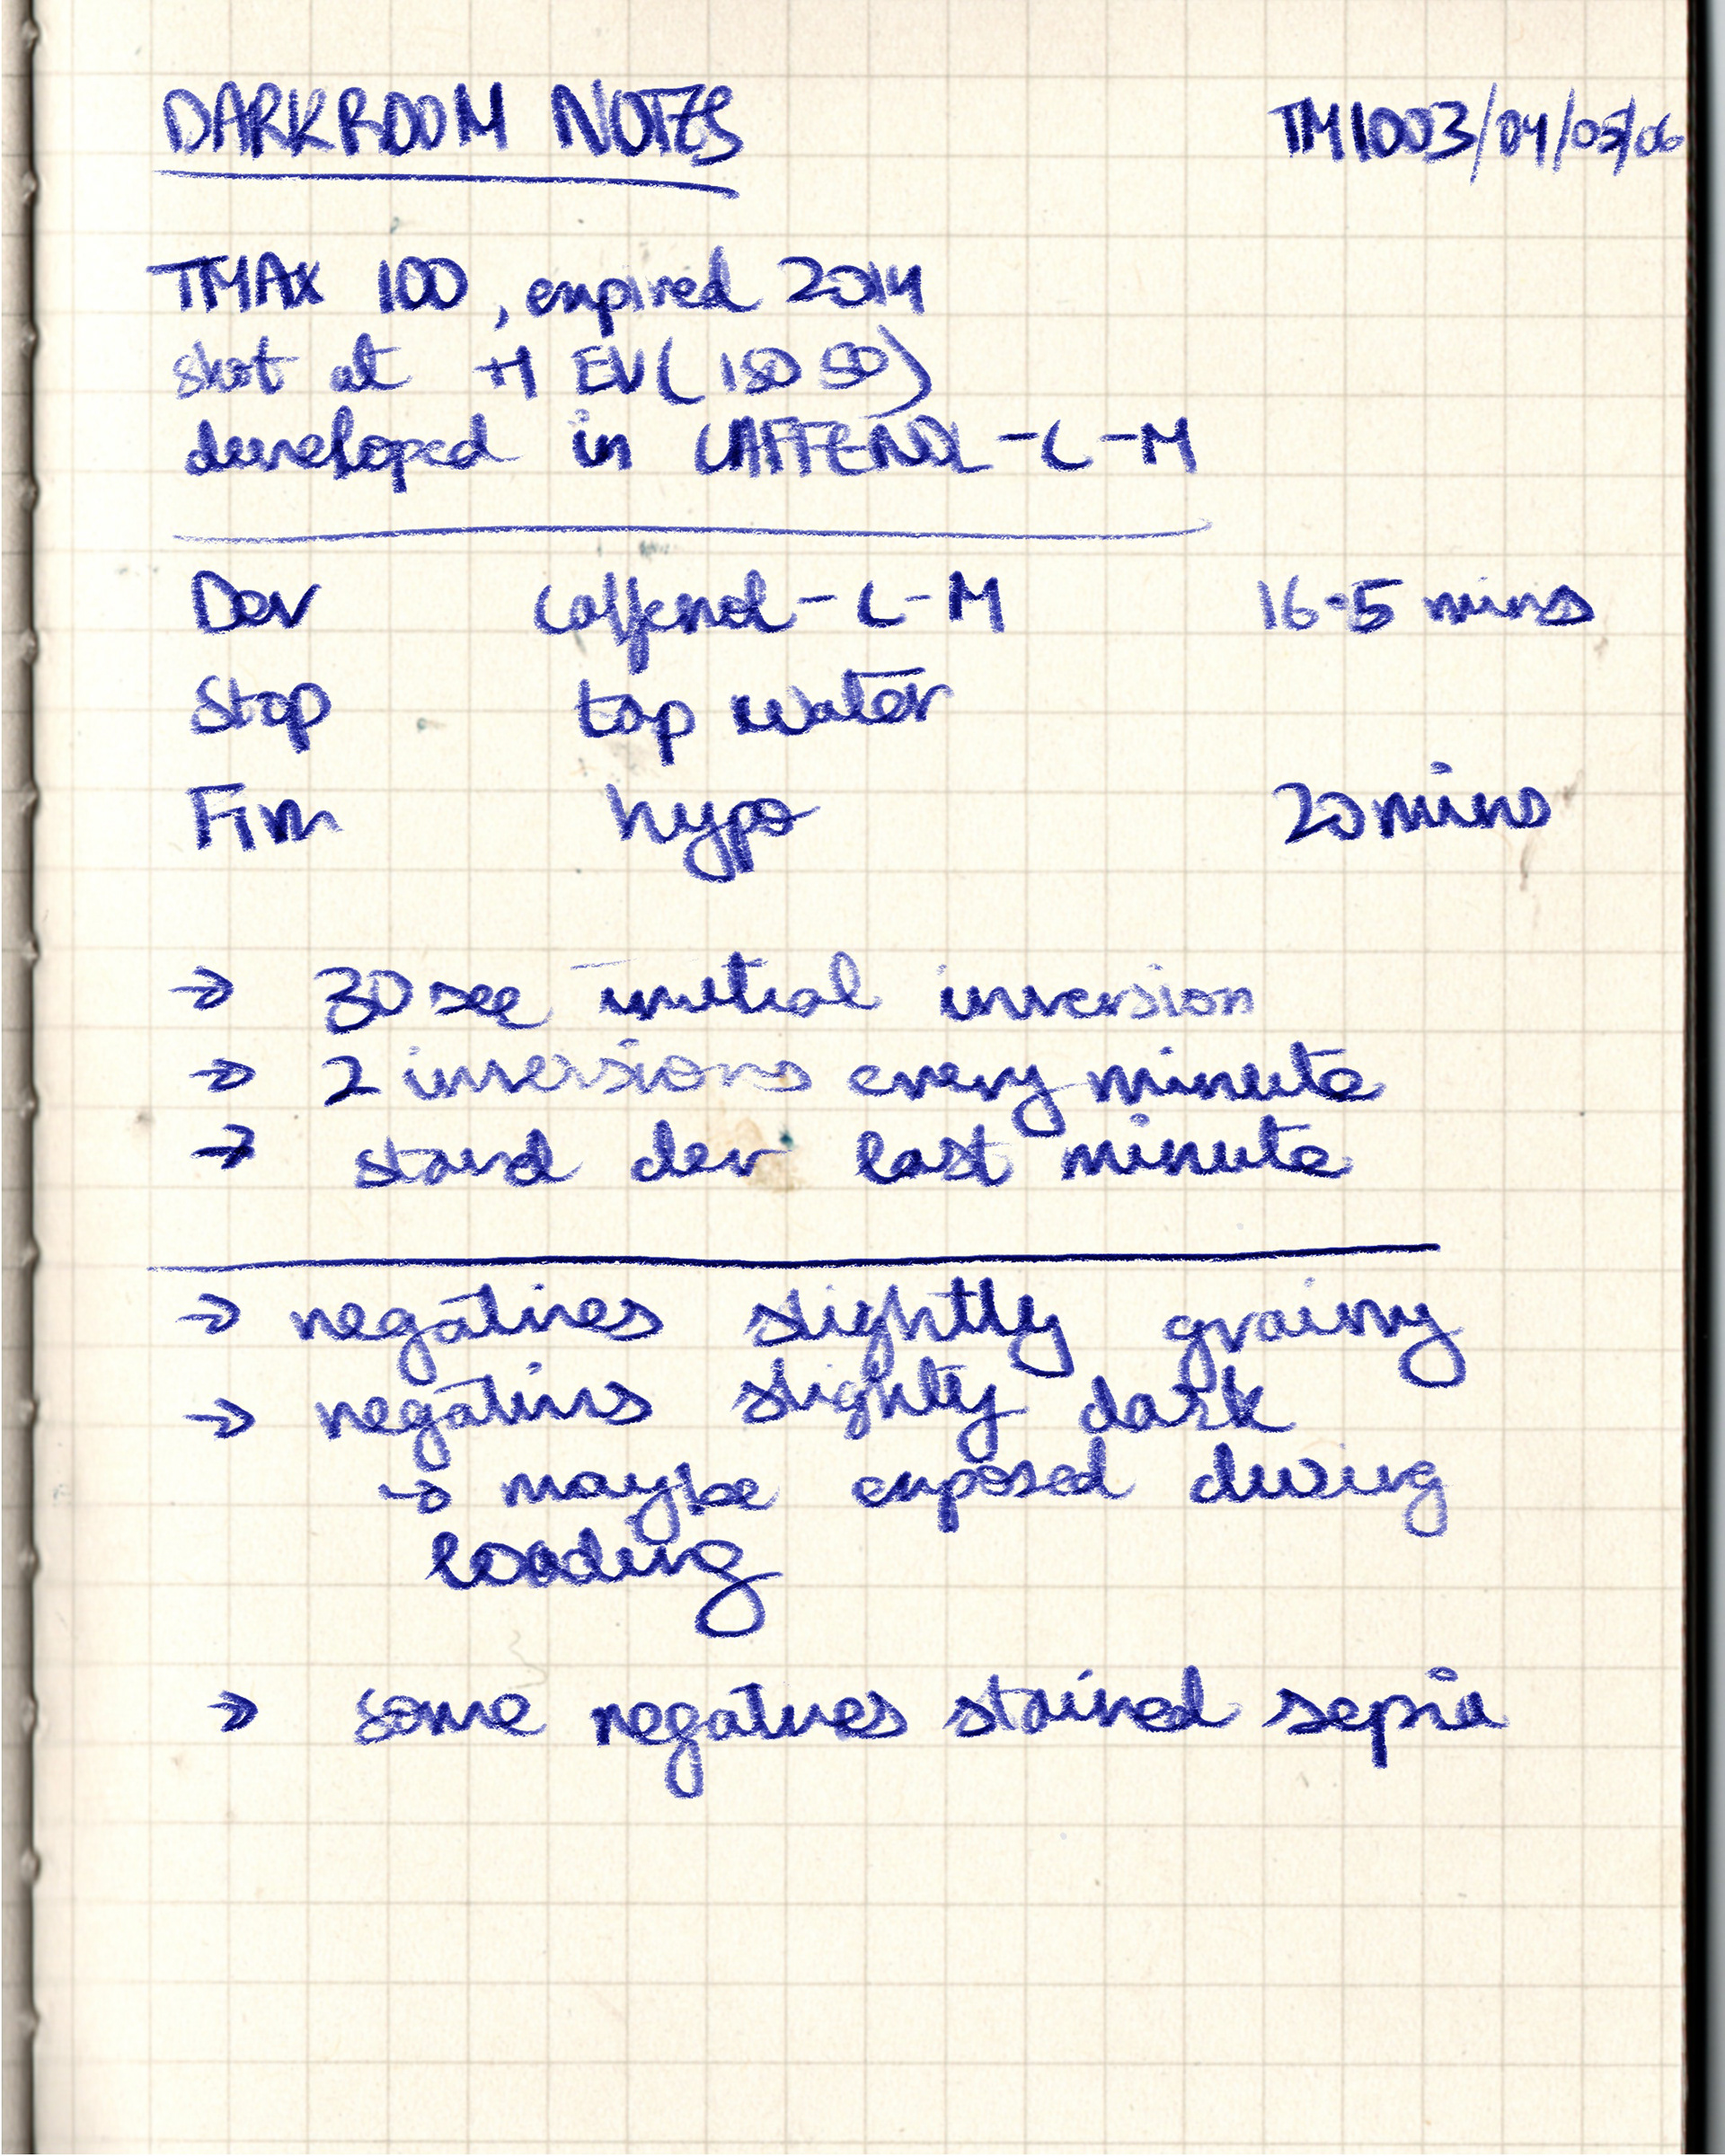 DARKROOM NOTES
TM1003/04/05/06
TMAX 100, expired 2014
shot at +1 EV (ISO 50)
developed in CAFFENOL-C-M
Dev caffenol-C-M 16.5 mins
Stop tap water
Fix hypo 20 mins
→ 30 sec initial inversion
→ 2 inversions every minute
→ stand dev last minute
→ negatives slightly grainy
→ negatives slightly dark
→ maybe exposed during
loading
→ some negatives stained sepia